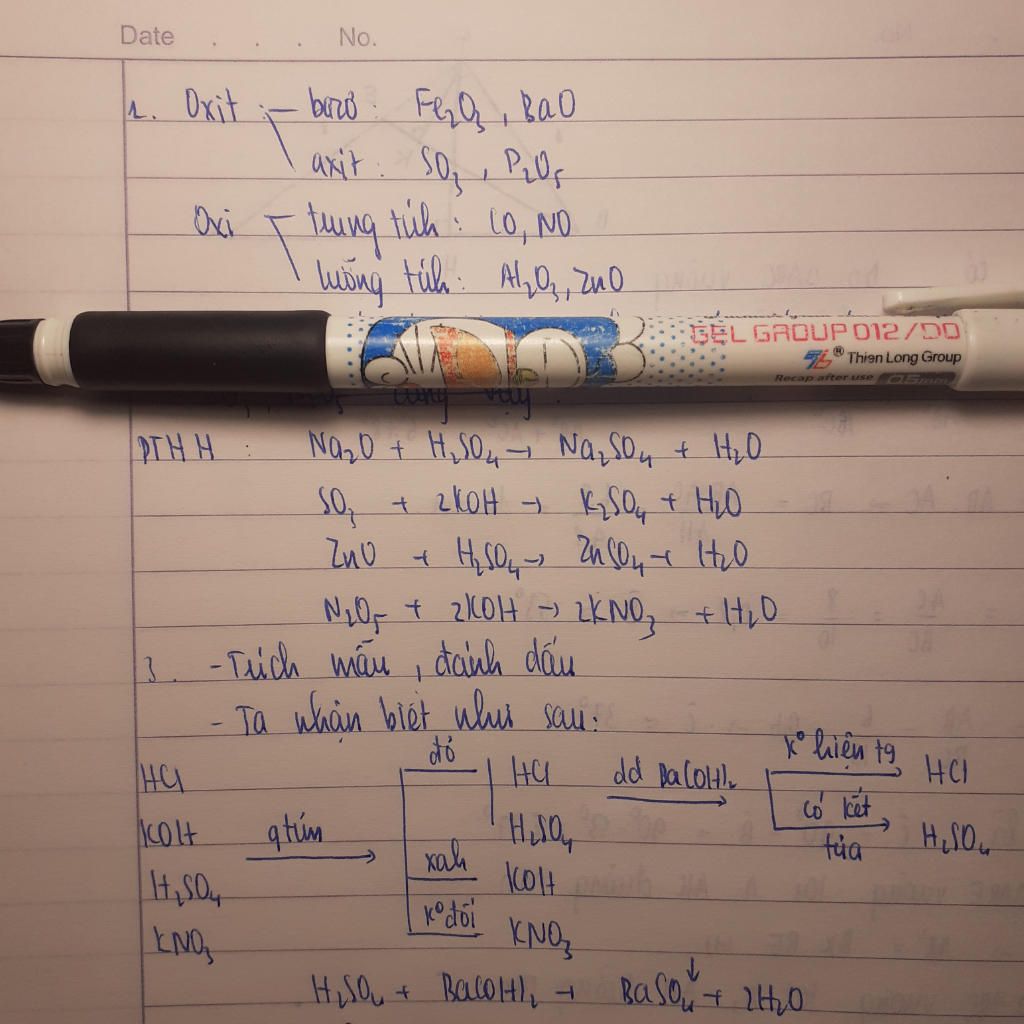 Date . . . No.
1. Oxit : bazơ : Fe₂O₃, BaO
axit : SO₃, P₂O₅
Oxi trung tính : CO, NO
lưỡng tính : Al₂O₃, ZnO
GEL GROUP 012/DO
® Thien Long Group
Recap after use 0.5mm
cũng vậy
PTHH : Na₂O + H₂SO₄ → Na₂SO₄ + H₂O
SO₃ + 2KOH → K₂SO₄ + H₂O
ZnO + H₂SO₄ → ZnSO₄ + H₂O
N₂O₅ + 2KOH → 2KNO₃ + H₂O
3. - Trích mẫu, đánh dấu
- Ta nhận biết như sau:
HCl đỏ HCl dd Ba(OH)₂ k° hiện tg HCl
KOH qtím H₂SO₄ có kết tủa H₂SO₄
H₂SO₄ xah KOH
KNO₃ k° đổi KNO₃
H₂SO₄ + Ba(OH)₂ → BaSO₄↓ + 2H₂O